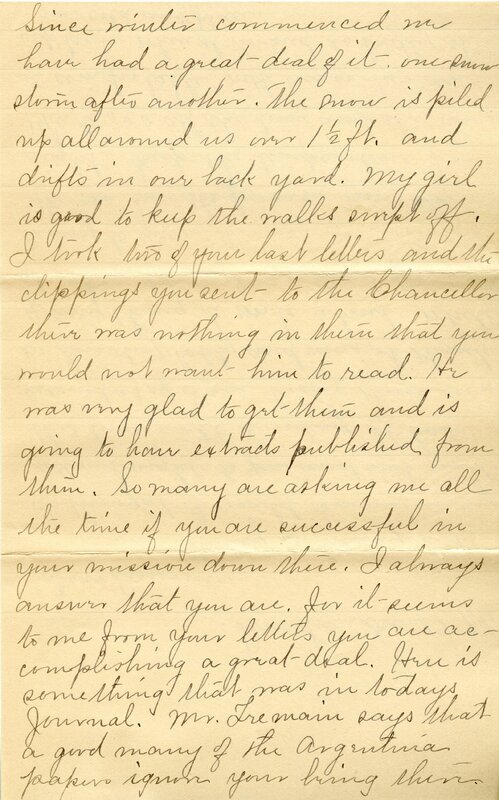 Since winter commenced we
have had a great deal of it. one snow
storm after another. The snow is piled
up all around us over 1 1/2 ft. and
drifts in our back yard. My girl
is good to keep the walks swept off.
I took two of your last letters and the
clippings you sent to the Chancellor
there was nothing in them that you
would not want him to read. He
was very glad to get them and is
going to have extracts published from
them. So many are asking me all
the time if you are successful in
your mission down there. I always
answer that you are. for it seems
to me from your letters you are ac-
complishing a great deal. Here is
something that was in todays
Journal. Mr. Tremain says that
a good many of the Argentina
papers ignore your being there.